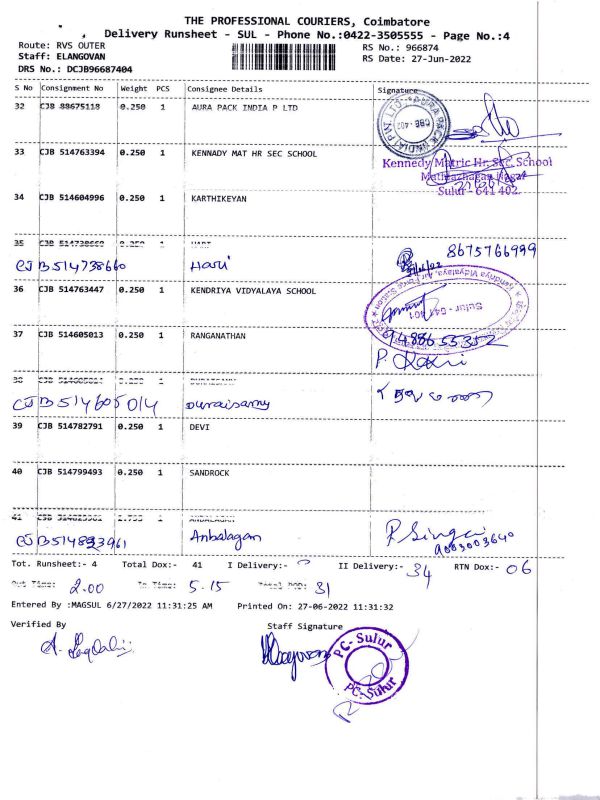 THE PROFESSIONAL COURIERS, Coimbatore
Delivery Runsheet - SUL - Phone No.:0422-3505555 - Page No.:4
Route: RVS OUTER RS No.: 966874
Staff: ELANGOVAN RS Date: 27-Jun-2022
DRS No.: DCJB96687404
S No Consignment No Weight PCS Consignee Details Signature
32 CJB 88675118 0.250 1 AURA PACK INDIA P LTD
33 CJB 514763394 0.250 1 KENNADY MAT HR SEC SCHOOL
Kennedy Matric Hr. Sec. School
Mathiazhagan Nagar
Sulur - 641 402.
34 CJB 514604996 0.250 1 KARTHIKEYAN
35 CJB 514738660 0.250 1 HARI
CJB514738660 Hari 8675766999
36 CJB 514763447 0.250 1 KENDRIYA VIDYALAYA SCHOOL
Sulur - 641 401
37 CJB 514605013 0.250 1 RANGANATHAN 9488655352
38 CJB 514605014 0.250 1 DURAISAMY
CJB514605014 Duraisamy
39 CJB 514782791 0.250 1 DEVI
40 CJB 514799493 0.250 1 SANDROCK
41 1 ANBALAGAN
Anbalagan 9003003640
Tot. Runsheet:- 4 Total Dox:- 41 I Delivery:- II Delivery:- 34 RTN Dox:- 06
Out Time: 2.00 In Time: 5.15 Total POD: 31
Entered By :MAGSUL 6/27/2022 11:31:25 AM Printed On: 27-06-2022 11:31:32
Verified By Staff Signature
PC-Sulur
PC-Sulur